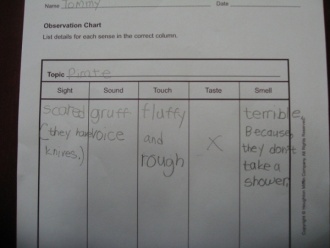 Name Tommy Date
Observation Chart
List details for each sense in the correct column.
Topic Pirate
Sight Sound Touch Taste Smell
scared gruff fluffy X terrible.
(they have voice and Because
knives.) rough they don't
take a
shower.